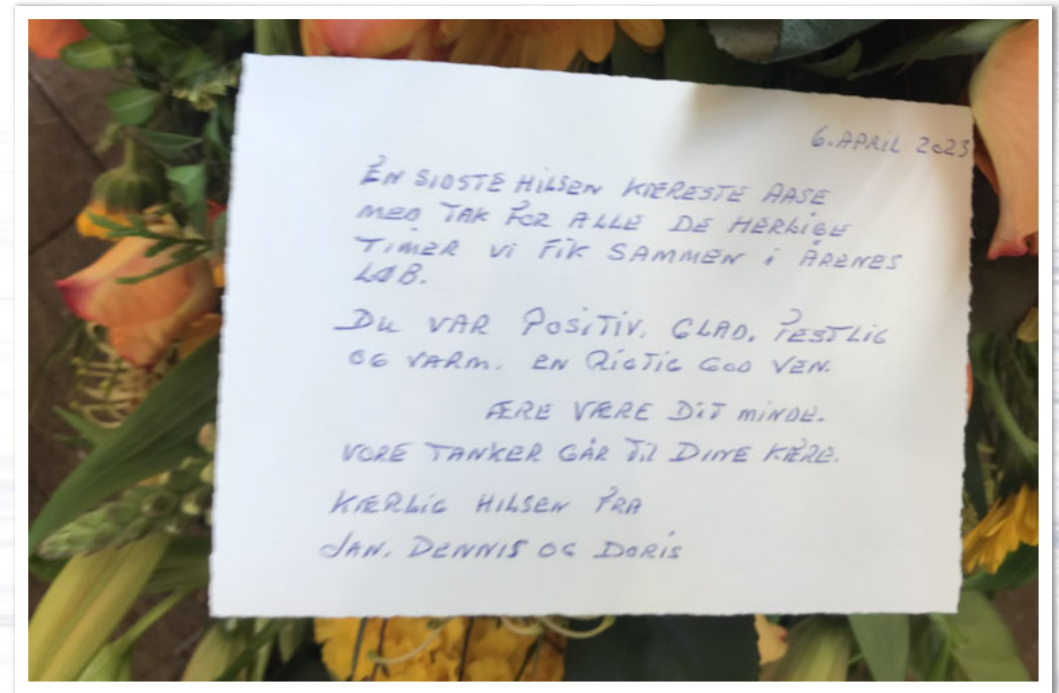 6. APRIL 2023
EN SIDSTE HILSEN KÆRESTE AASE
MED TAK FOR ALLE DE HERLIGE
TIMER VI FIK SAMMEN i ÅRENES
LØB.
DU VAR POSITIV, GLAD, FESTLIG
OG VARM. EN RIGTIG GOD VEN.
ÆRE VÆRE DIT MINDE.
VORE TANKER GÅR TIL DINE KÆRE.
KÆRLIG HILSEN FRA
JAN, DENNIS OG DORIS